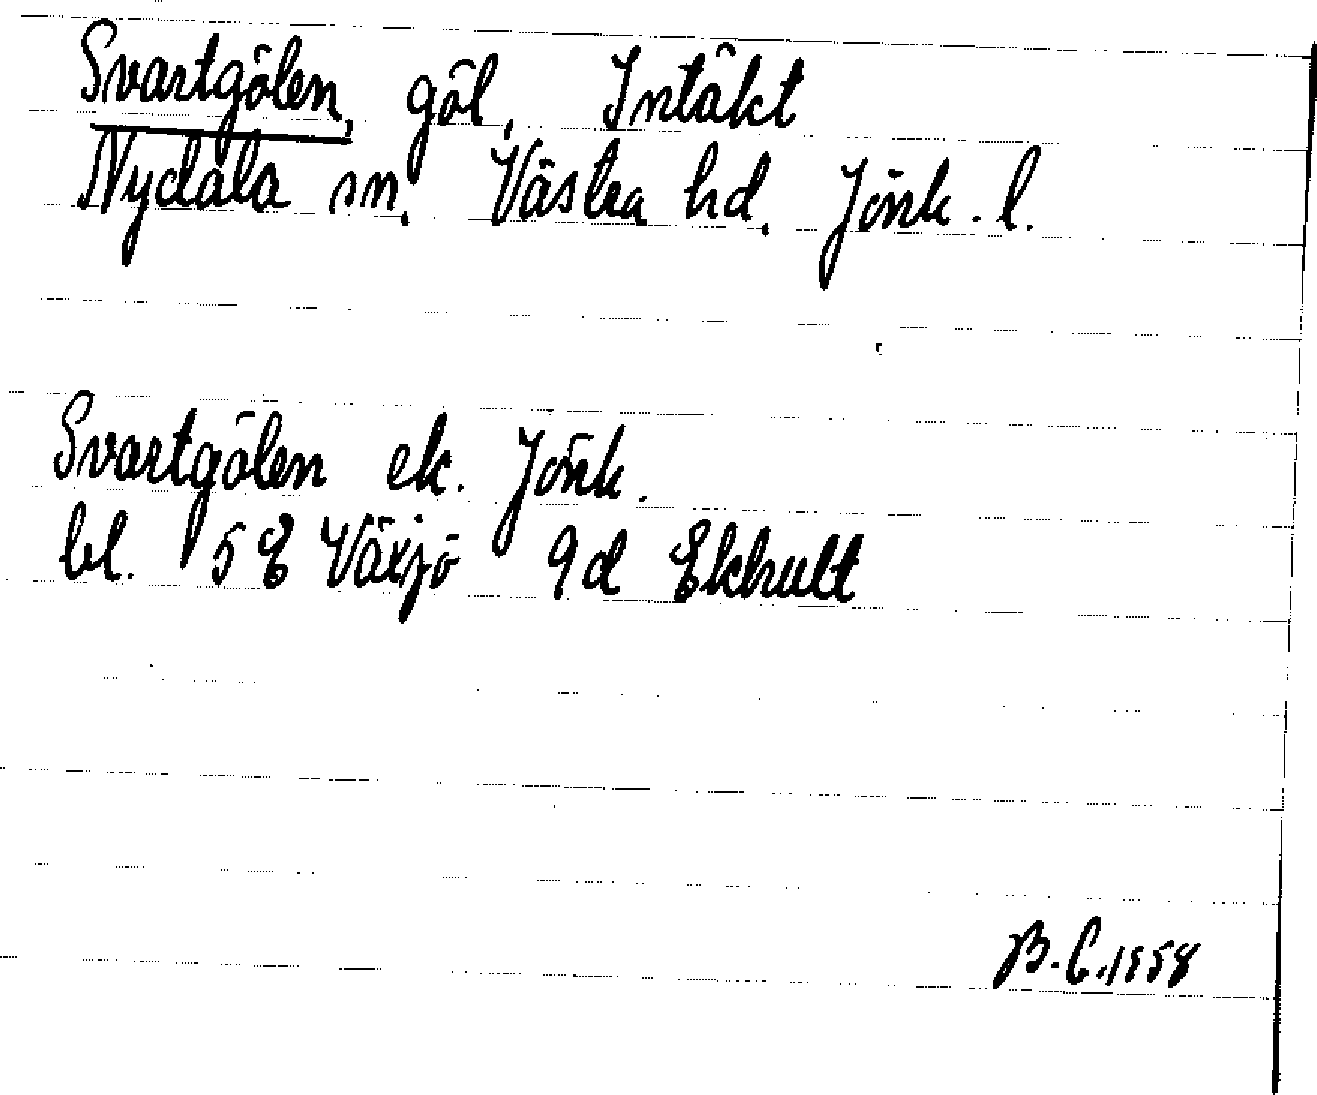 Svartgölen, göl, Intäkt
Nydala sn. Västra hd. Jönk. l.
Svartgölen ek. Jönk.
bl. 5E Växjö 9d Ekhult
B.C. 1958